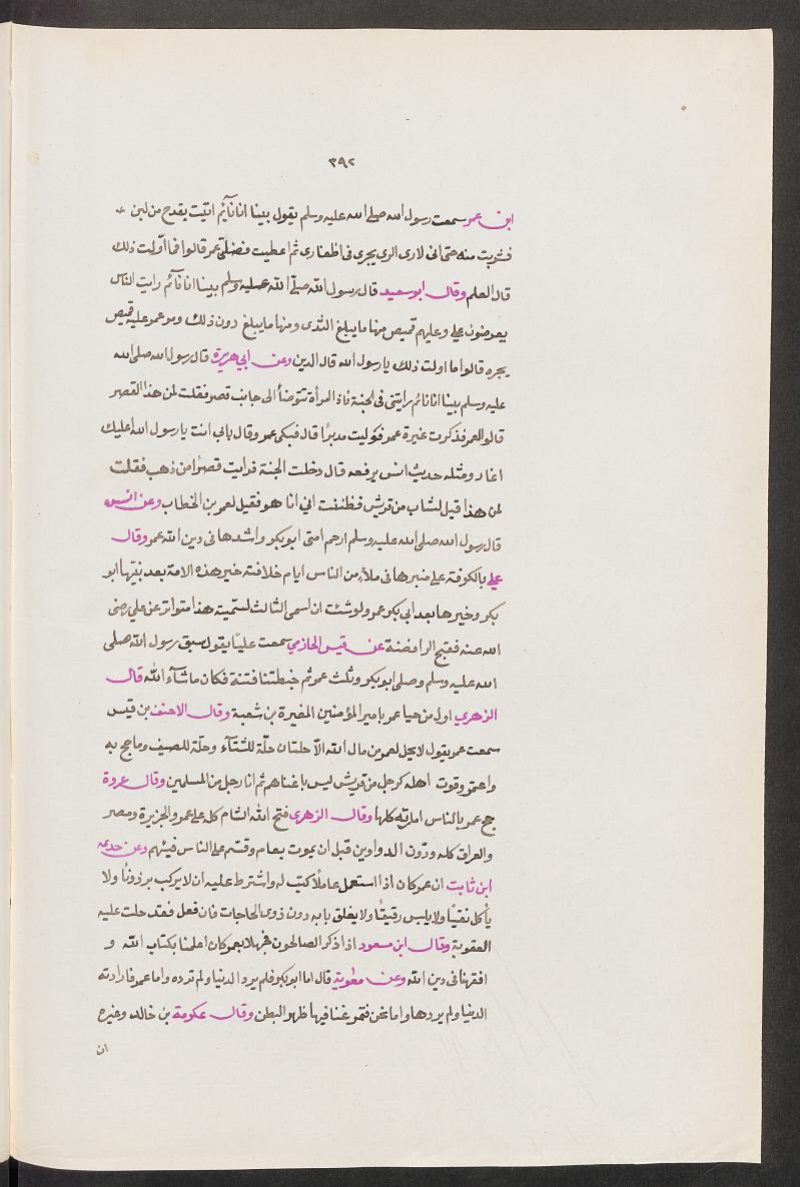 ٣٩٢
ابن عمر سمعت رسول الله صلى الله عليه وسلم يقول بينا انا نائم اتيت بقدح من لبن
فشربت منه حتى انى لارى الرى يجرى فى اظفارى ثم اعطيت فضلتى عمر قالوا فما اوّلت ذلك
قال العلم وقال ابو سعيد قال رسول الله صلى الله عليه وسلم بينا انا نائم رايت الناس
يعرضون علي وعليهم قميص منها ما يبلغ الثدى ومنها ما يبلغ دون ذلك ومر عمر عليه قميص
يجره قالوا ما اولت ذلك يا رسول الله قال الدين وعن ابي هريرة قال رسول الله صلى الله
عليه وسلم بينا انا نائم رايتنى فى الجنة فاذ المرأة تتوضأ الى جانب قصر فقلت لمن هذا القصر
قالوا لعمر فذكرت غيرة عمر فوليت مدبرًا قال فبكى عمر وقال بابى انت يا رسول الله اعليك
اغار ومثله حديث انس يرفعه قال دخلت الجنة فرايت قصرًا من ذهب فقلت
لمن هذا قيل لشاب من قريش فظننت انى انا هو فقيل لعمر بن الخطاب وعن انس
قال رسول الله صلى الله عليه وسلم ارحم امتى ابو بكر واشدها فى دين الله عمر وقال
علي بالكوفة على منبرها فى ملأ من الناس ايام خلافته خير هذه الامة بعد نبيّها ابو
بكر وخيرها بعد ابى بكر عمر ولو شئت ان اسمى الثالث لسميته هذا متواتر عن علي رضى
الله عنه فقبح الرافضة عن قيس الخازمي سمعت عليًا يقول سبق رسول الله صلى
الله عليه وسلم وصلى ابو بكر وثلث عمر ثم خبطتنا فتنة فكان ما شآء الله قال
الزهري اول من حيا عمر بامير المؤمنين المغيرة بن شعبة وقال الاحنف بن قيس
سمعت عمر يقول لا يحل لعمر من مال الله الا حلتان حلّة للشتآء وحلّة للصيف وما حج به
واعتمر وقوت اهله كرجل من قريش ليس باغناهم ثم انا رجل من المسلمين وقال عروة
حج عمر بالناس امارته كلها وقال الزهرى فتح الله الشام كله على عمر والجزيرة ومصر
والعراق كله ودوّن الدواوين قبل ان يموت بعام وقسم على الناس فيئهم وعن خديمه
ابن ثابت ان عمر كان اذا استعمل عاملاً كتب له واشترط عليه ان لا يركب برذونًا ولا
يأكل نقيًا ولا يلبس رقيقًا ولا يغلق بابه دون ذوى الحاجات فان فعل فقد حلت عليه
العقوبة وقال ابن مسعود اذا ذكر الصالحون فحيهلا بعمر كان اعلمنا بكتاب الله و
افقهنا فى دين الله وعن معاوية قال اما ابو بكر فلم يرد الدنيا ولم ترده واما عمر فارادته
الدنيا ولم يردها واما نحن فتمرغنا فيها ظهر البطن وقال عكرمة بن خالد وغيره
ان